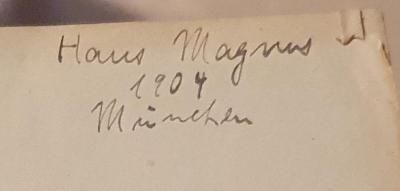 Hans Magnus
1904
München